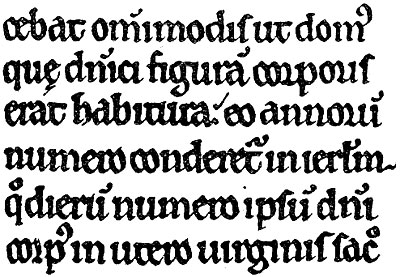 cebat om̄imodiſ ut domꝰ
quę dn̄ici figurā corporiſ
erat habitura. eo annorū
numero conderet̄ in ierłm
qͦ dierū numero ipſū dn̄i
corpꝰ in utero uirginiſ ſacͦ